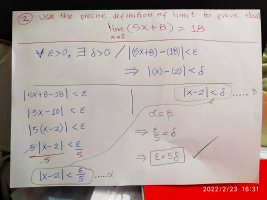 ② Use the precise definition of limit to prove that
lim (5x+8) = 18
x→2
∀ ε>0, ∃ δ>0 / |(5x+8)-(18)|<ε
⇒ |(x)-(2)|<δ
|5x+8-18|<ε
|5x-10|<ε
|5(x-2)|<ε
5|x-2|<ε
5 5
|x-2|<ε/5 .....α
|x-2|<δ .....β
α=β
⇒ ε/5=δ
⇒ ε=5δ ✓
2022/2/23 16:31